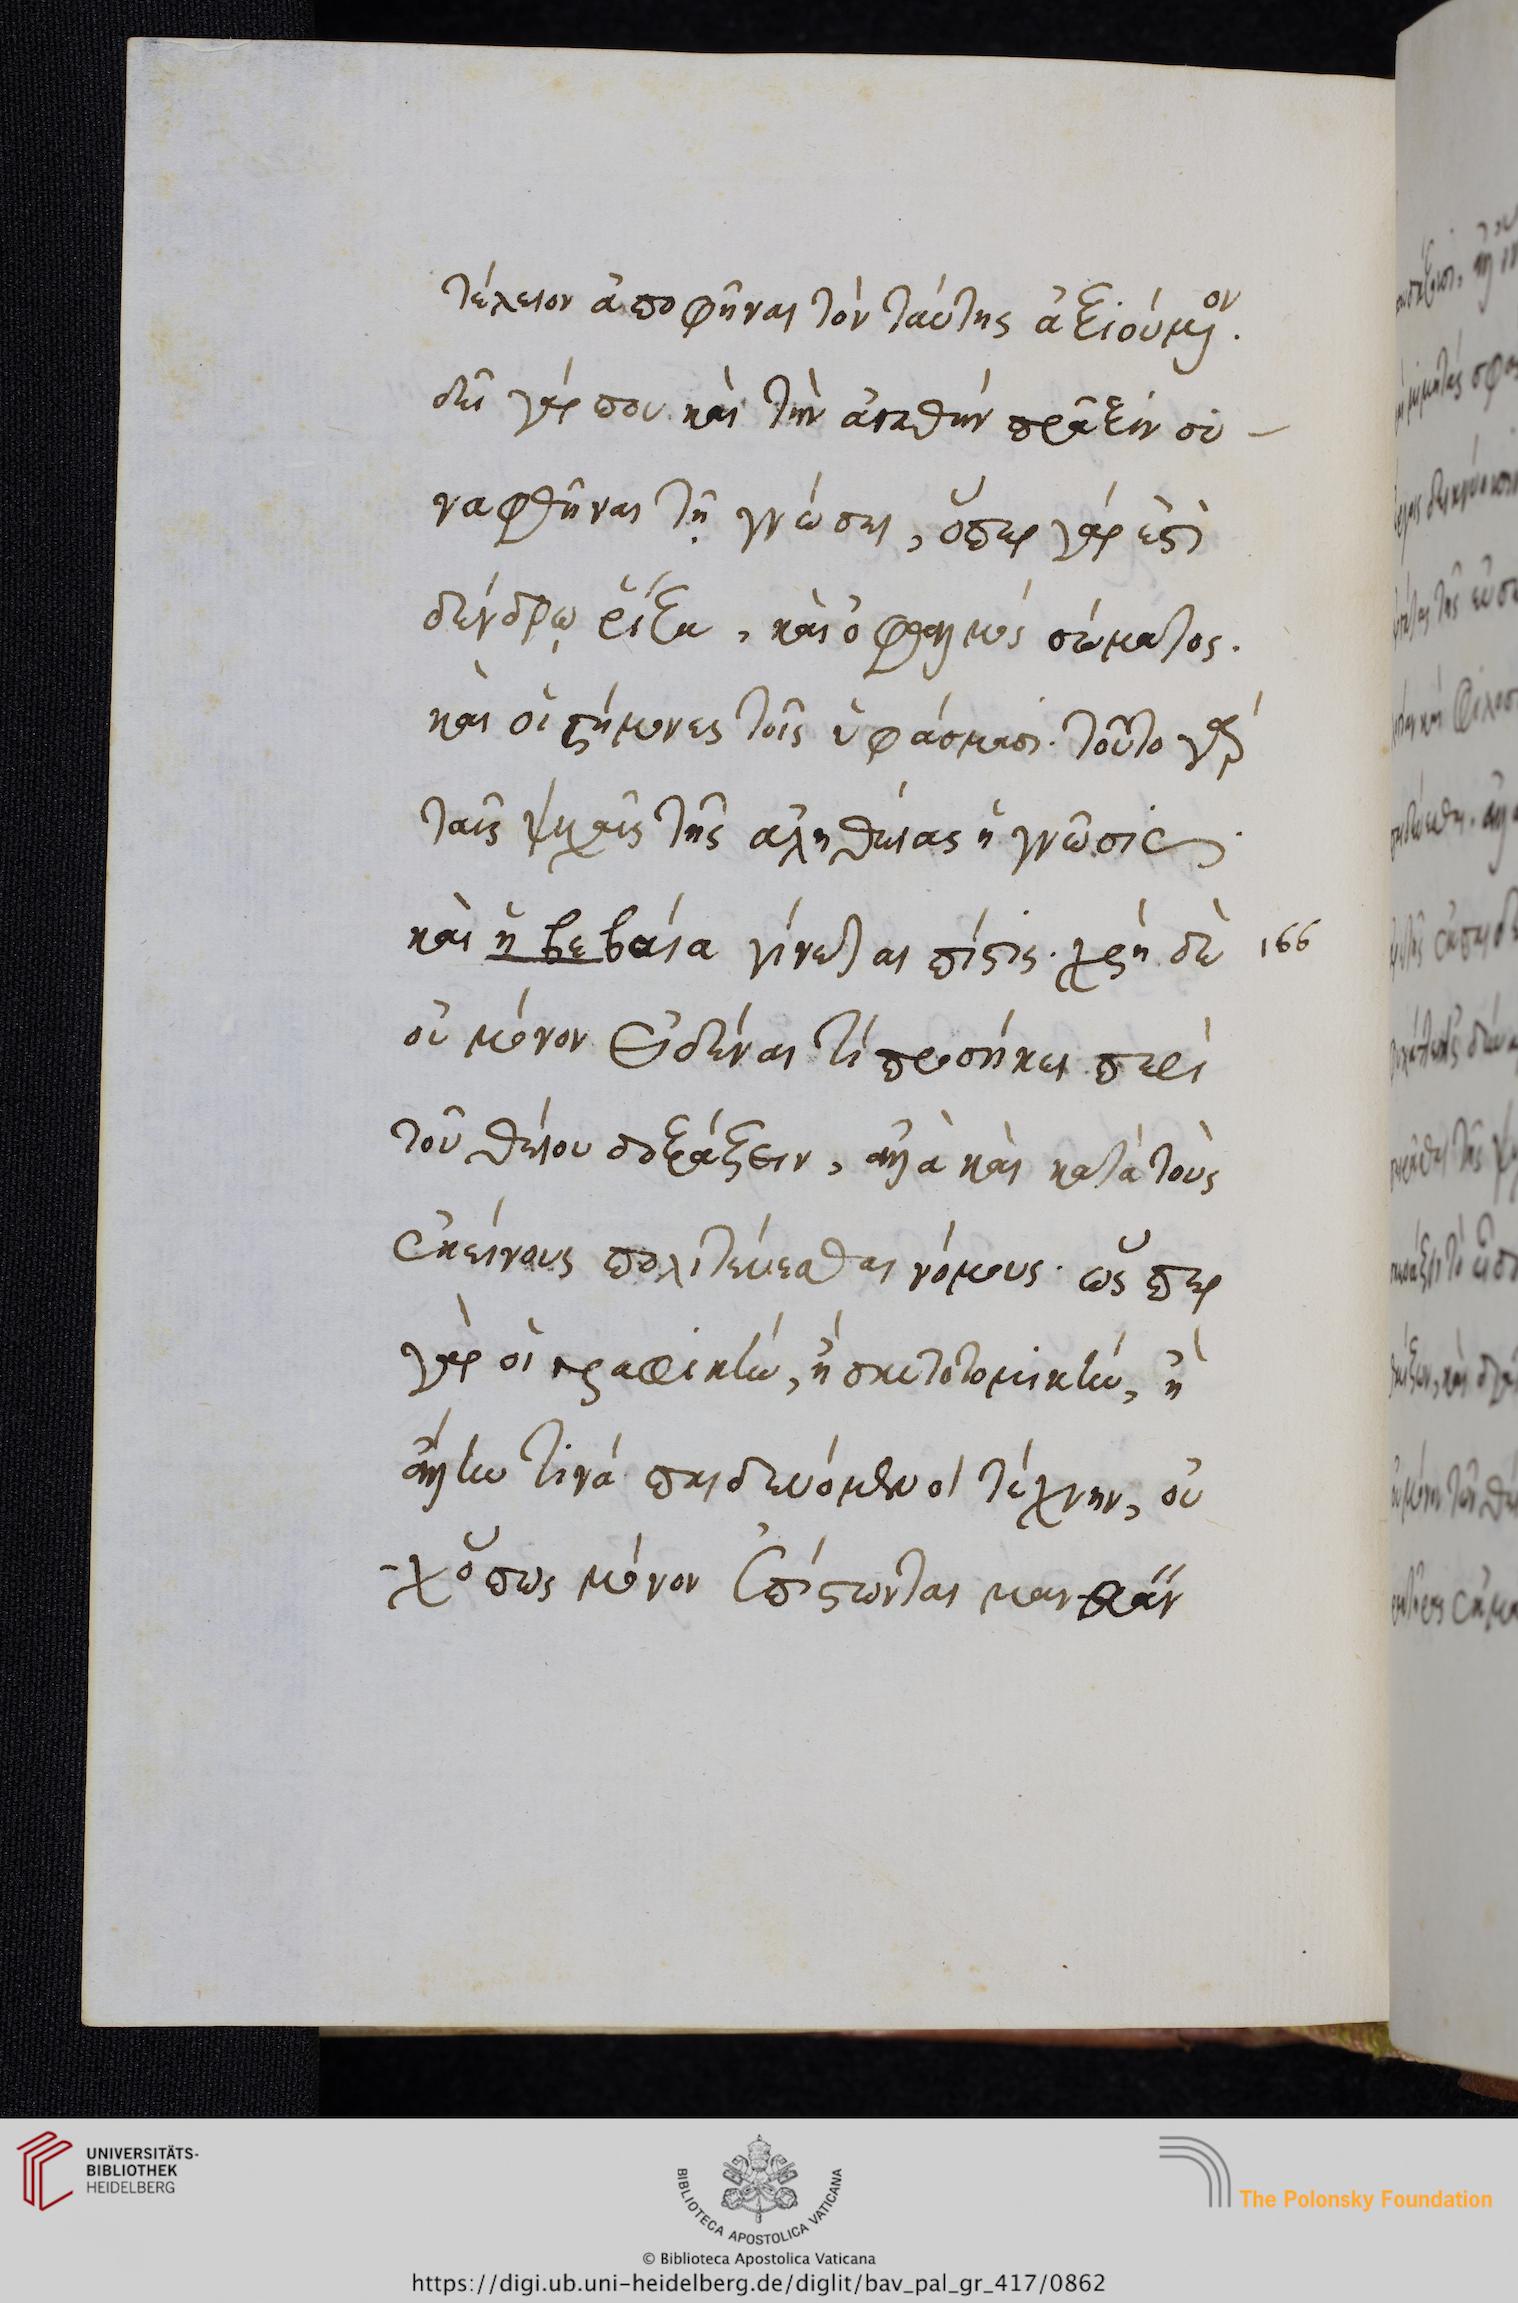 τέλειον ἀποφῆναι τὸν ταύτης ἀξιούμενον.
δεῖ γάρ που καὶ τὴν ἀγαθὴν πρᾶξιν συ-
ναφθῆναι τῇ γνώσει, ὅπερ γάρ ἐστι
δένδρῳ ῥίζα, καὶ ὀφθαλμὸς σώματος.
καὶ οἱ στήμονες τοῖς ὑφάσμασι. τοῦτο γάρ
ταῖς ψυχαῖς τῆς ἀληθείας ἡ γνῶσις.
καὶ ἡ βεβαία γίνεται πίστις. χρὴ δὲ 166
οὐ μόνον εἰδέναι τί προσήκει περὶ
τοῦ θείου δοξάζειν, ἀλλὰ καὶ κατὰ τοὺς
ἐκείνους πολιτεύεσθαι νόμους. ὥσπερ
γὰρ οἱ γραφικὴν, ἢ σκυτοτομικὴν, ἢ
ἄλλην τινὰ παιδευόμενοι τέχνην, οὐ
-χ ὅπως μόνον ἐπίστωνται μανθάν
UNIVERSITÄTS-
BIBLIOTHEK
HEIDELBERG
BIBLIOTECA APOSTOLICA VATICANA
The Polonsky Foundation
© Biblioteca Apostolica Vaticana
https://digi.ub.uni-heidelberg.de/diglit/bav_pal_gr_417/0862